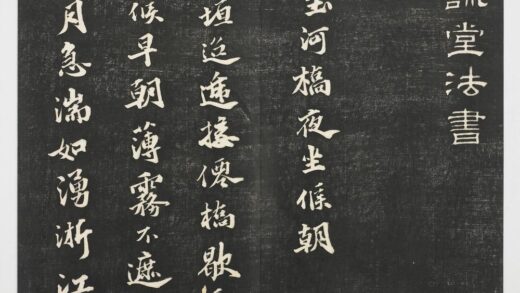 堂法書
玉河橋夜坐候朝
垣迢遞接僊橋歇
候早朝薄霧不遮
月急湍如湧浙江